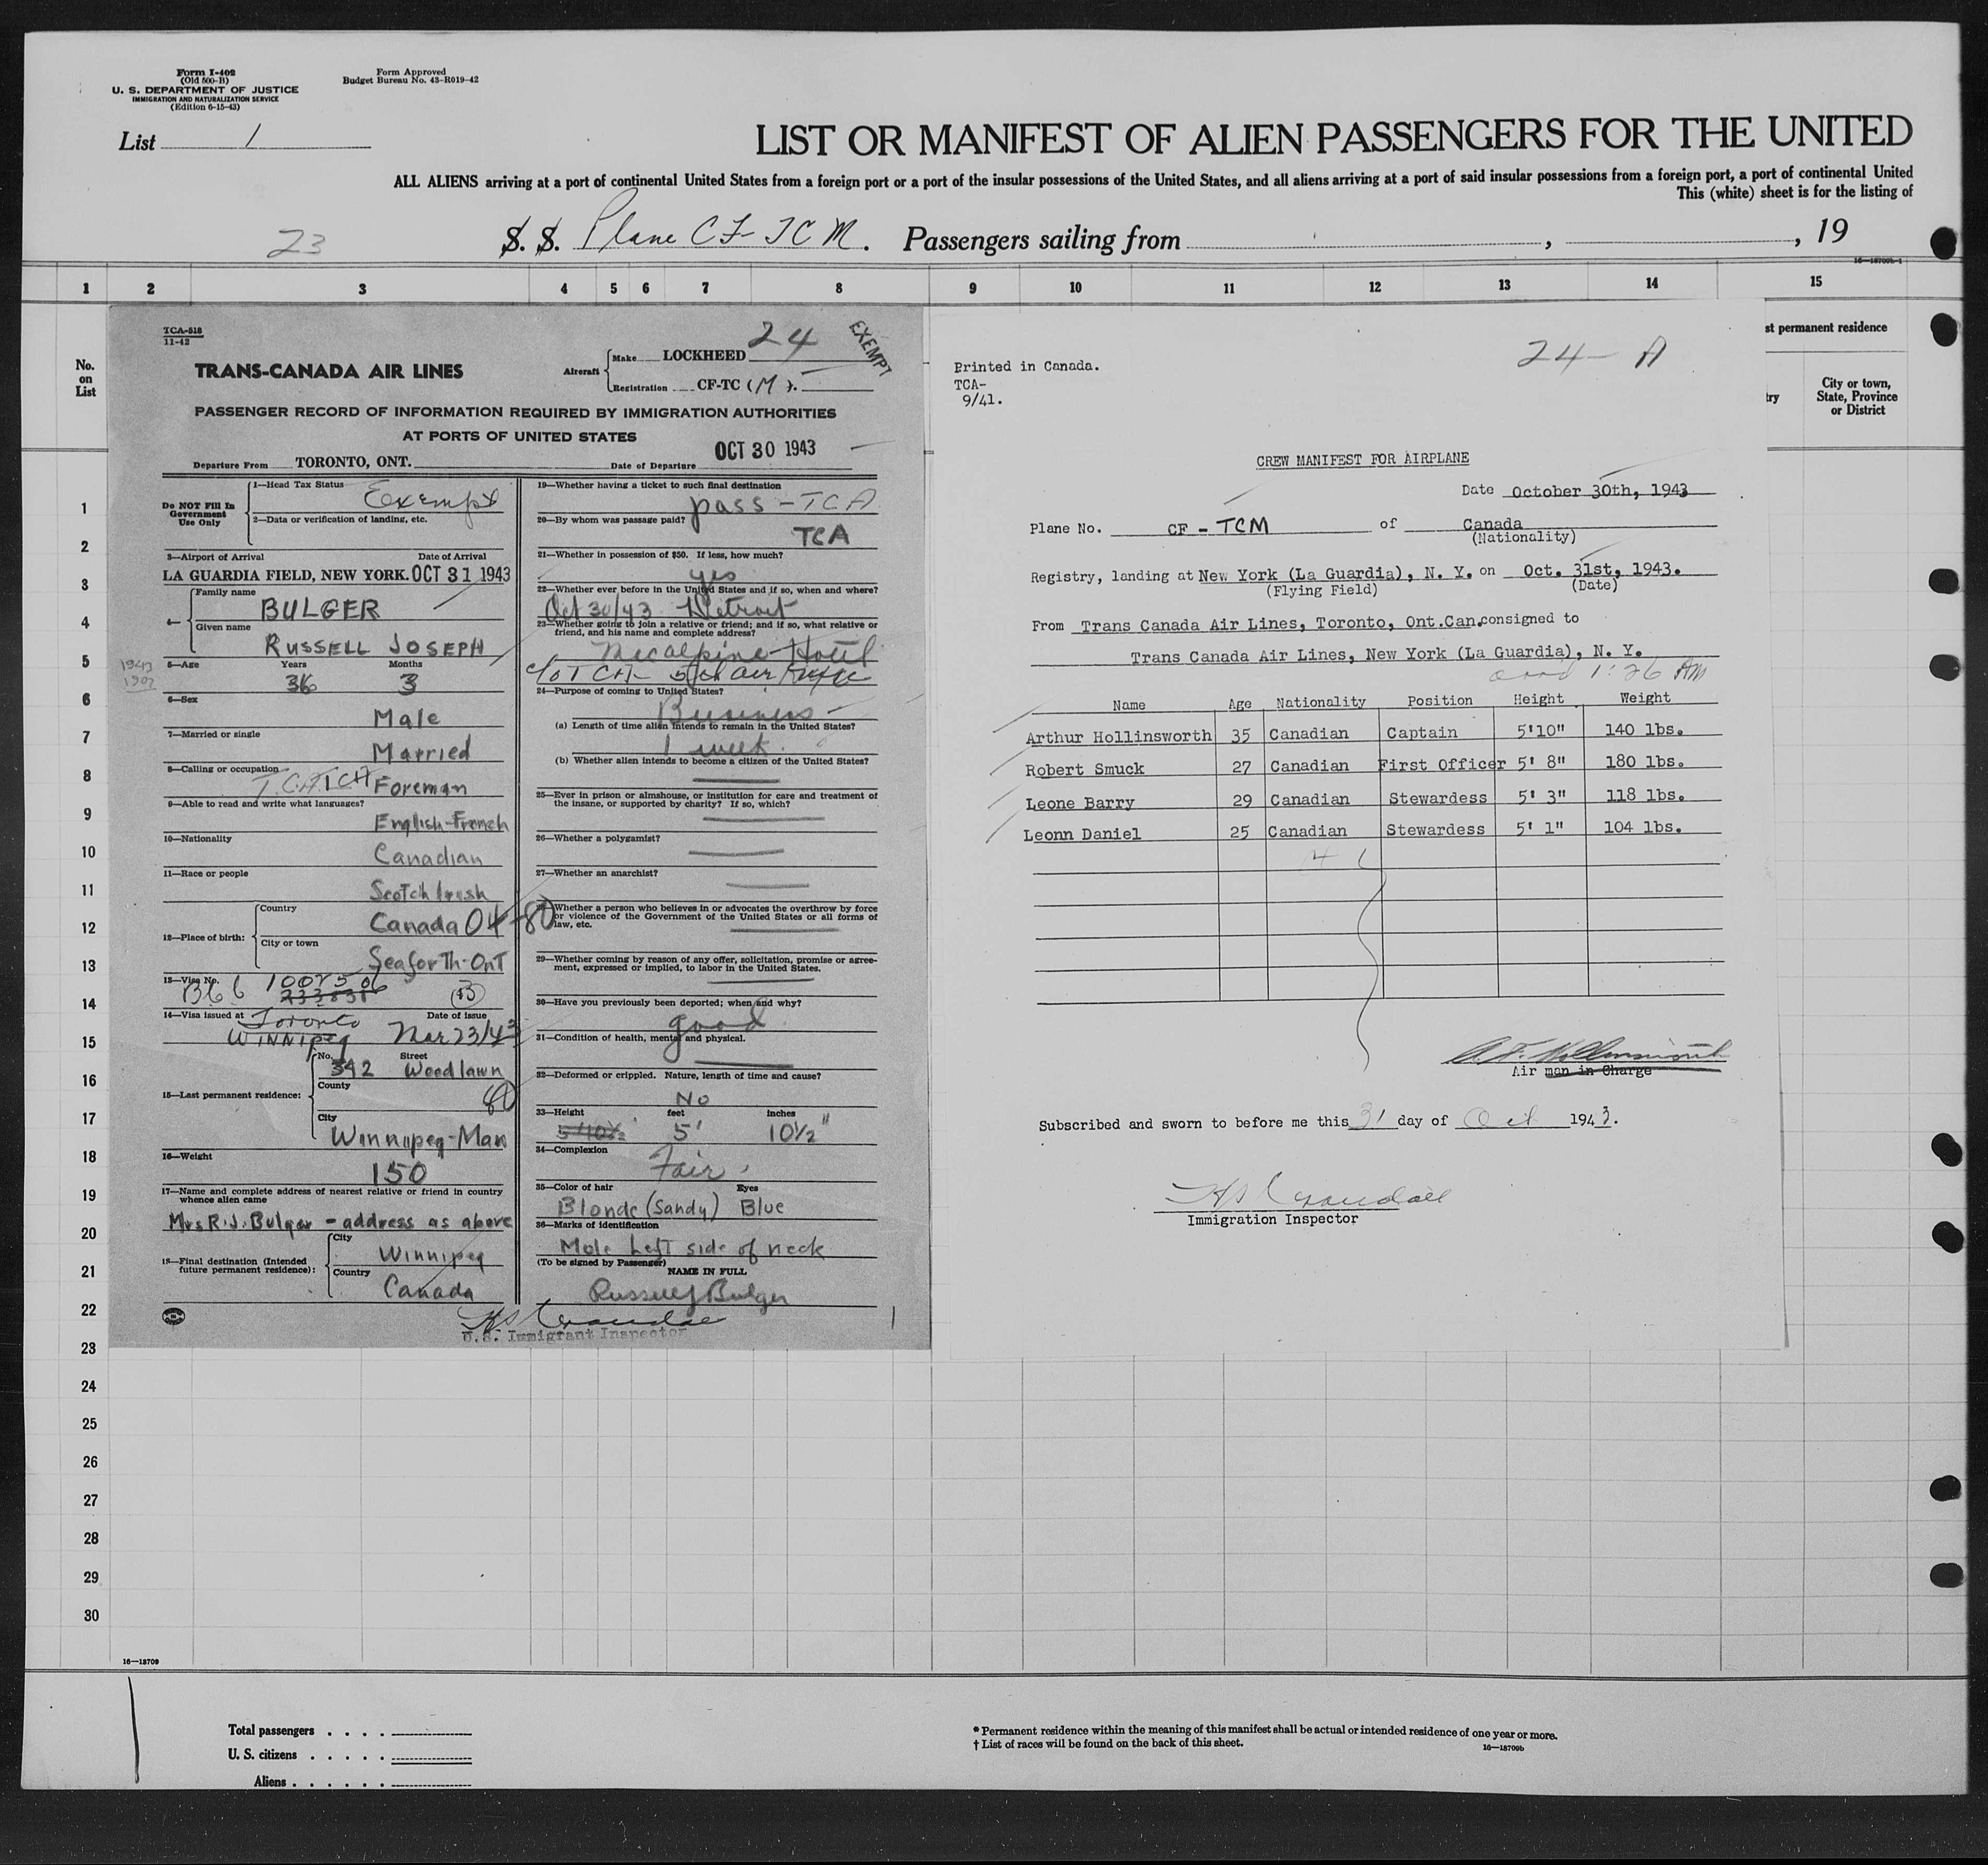 Form I-402
(Old 500-B)
U. S. DEPARTMENT OF JUSTICE
IMMIGRATION AND NATURALIZATION SERVICE
(Edition 6-15-43)
Form Approved
Budget Bureau No. 43-R019-42
List 1
LIST OR MANIFEST OF ALIEN PASSENGERS FOR THE UNITED
ALL ALIENS arriving at a port of continental United States from a foreign port or a port of the insular possessions of the United States, and all aliens arriving at a port of said insular possessions from a foreign port, a port of continental United
This (white) sheet is for the listing of
23
S. S. Plane CF-TCM. Passengers sailing from , , 19
16—18709b-1
1 2 3 4 5 6 7 8 9 10 11 12 13 14 15
No.
on
List
st permanent residence
try
City or town,
State, Province
or District
TCA-518
11-42
24
EXEMPT
TRANS-CANADA AIR LINES
Aircraft
Make LOCKHEED
Registration CF-TC (M).
PASSENGER RECORD OF INFORMATION REQUIRED BY IMMIGRATION AUTHORITIES
AT PORTS OF UNITED STATES
Departure From TORONTO, ONT.
Date of Departure OCT 30 1943
Do NOT Fill In
Government
Use Only
1—Head Tax Status Exempt
2—Data or verification of landing, etc.
3—Airport of Arrival Date of Arrival
LA GUARDIA FIELD, NEW YORK. OCT 31 1943
4—
Family name
BULGER
Given name
RUSSELL JOSEPH
1943
1907
5—Age Years Months
36 3
6—Sex
Male
7—Married or single
Married
8—Calling or occupation
T.C.A. TCA Foreman
9—Able to read and write what languages?
English-French
10—Nationality
Canadian
11—Race or people
Scotch Irish
12—Place of birth:
Country
Canada 04-80
City or town
Seaforth-Ont
13—Visa No.
B66 1007506
233838
14—Visa issued at Date of issue
Toronto
Winnipeg Mar 23/43
15—Last permanent residence:
No. Street
392 Woodlawn
County
80
City
Winnipeg-Man
16—Weight
150
17—Name and complete address of nearest relative or friend in country
whence alien came
Mrs R.J. Bulger - address as above
18—Final destination (Intended
future permanent residence):
City
Winnipeg
Country
Canada
19—Whether having a ticket to such final destination
pass - TCA
20—By whom was passage paid?
TCA
21—Whether in possession of $50. If less, how much?
yes
22—Whether ever before in the United States and if so, when and where?
Oct 30/43 Detroit
23—Whether going to join a relative or friend; and if so, what relative or
friend, and his name and complete address?
McAlpine Hotel
c/o TCA
24—Purpose of coming to United States?
Business
(a) Length of time alien intends to remain in the United States?
1 week
(b) Whether alien intends to become a citizen of the United States?
25—Ever in prison or almshouse, or institution for care and treatment of
the insane, or supported by charity? If so, which?
26—Whether a polygamist?
27—Whether an anarchist?
Whether a person who believes in or advocates the overthrow by force
or violence of the Government of the United States or all forms of
law, etc.
29—Whether coming by reason of any offer, solicitation, promise or agree-
ment, expressed or implied, to labor in the United States.
30—Have you previously been deported; when and why?
good
31—Condition of health, mental and physical.
32—Deformed or crippled. Nature, length of time and cause?
No
33—Height feet inches
5' 10½"
34—Complexion
Fair
35—Color of hair Eyes
Blonde (Sandy) Blue
36—Marks of identification
Mole Left side of neck
(To be signed by Passenger)
NAME IN FULL
Russell J Bulger
U.S. Immigrant Inspector
Printed in Canada.
TCA-
9/41.
24 - A
CREW MANIFEST FOR AIRPLANE
Date October 30th, 1943
Plane No. CF - TCM of Canada
(Nationality)
Registry, landing at New York (La Guardia), N. Y. on Oct. 31st, 1943.
(Flying Field) (Date)
From Trans Canada Air Lines, Toronto, Ont.Can. consigned to
Trans Canada Air Lines, New York (La Guardia), N. Y.
1:26 AM
Name Age Nationality Position Height Weight
Arthur Hollinsworth 35 Canadian Captain 5'10" 140 lbs.
Robert Smuck 27 Canadian First Officer 5' 8" 180 lbs.
Leone Barry 29 Canadian Stewardess 5' 3" 118 lbs.
Leonn Daniel 25 Canadian Stewardess 5' 1" 104 lbs.
Air man in Charge
Subscribed and sworn to before me this 31 day of Oct 1943.
Immigration Inspector
1
2
3
4
5
6
7
8
9
10
11
12
13
14
15
16
17
18
19
20
21
22
23
24
25
26
27
28
29
30
16—18709
Total passengers . . . .
U. S. citizens . . . . .
Aliens . . . . . .
* Permanent residence within the meaning of this manifest shall be actual or intended residence of one year or more.
† List of races will be found on the back of this sheet.
16—18709b